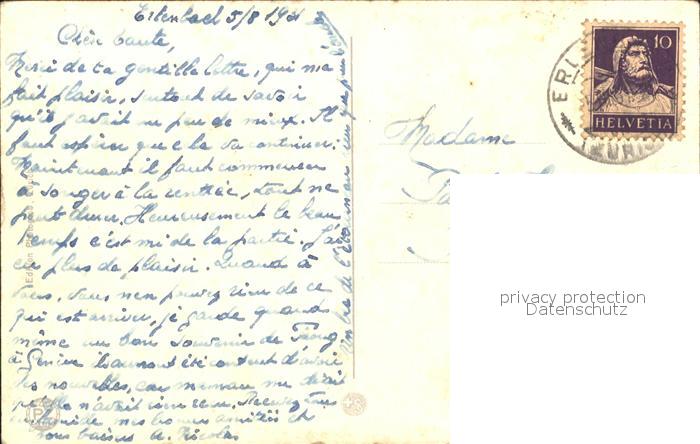 Erlenbach 5/8 1931
Chère tante,
Merci de ta gentille lettre, qui m'a
fait plaisir, surtout de savoir
qu'il y avait un peu de mieux. Il
faut espérer que cela va continuer.
Maintenant il faut commencer
à songer à la rentrée, tout ne
peut durer. Heureusement le beau
temps s'est mis de la partie. J'ai
eu plus de plaisir. Quand à
vous, vous n'en pouvez rien de ce
qui est arrivé, je garde quand
même un bon souvenir de
à Genève ils auront été content d'avoir
des nouvelles, car maman me disait
qu'elle n'avait rien reçu. Recevez tous
mes bonnes amitiés et
bons baisers
Madame
10
HELVETIA
ERL
(ZÜRICH)
privacy protection
Datenschutz